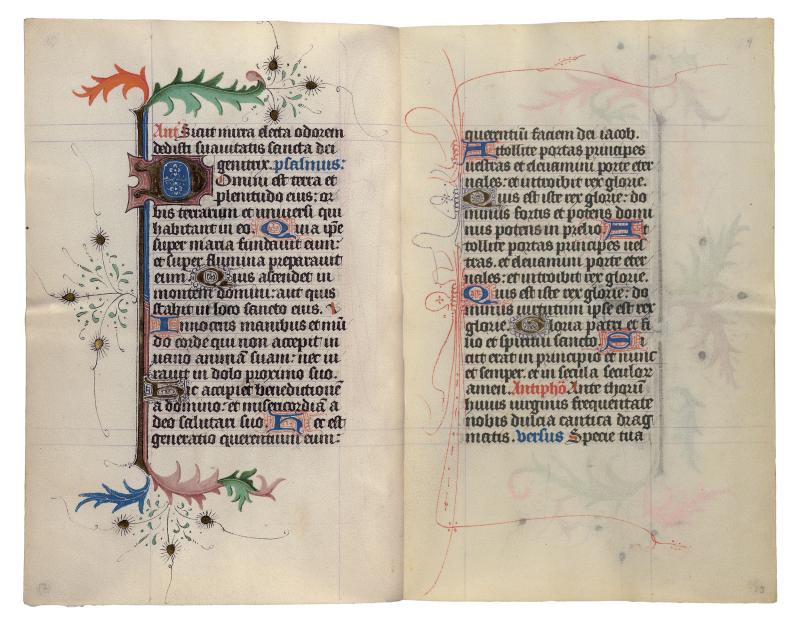 Ant Sicut mirra electa odorem
dedisti suavitatis sancta dei
genitrix. psalmus:
Domini est terra et
plenitudo eius: or
bis terrarum et universi qui
habitant in eo. Quia ip̄e
super maria fundavit eum:
et super flumina preparavit
eum. Quis ascendet in
montem domini: aut quis
stabit in loco sancto eius. I
Innocens manibus et mū
do corde qui non accepit in
vano animā suam: nec iu
ravit in dolo proximo suo.
Hic accipiet benedictionē
a domino: et misericordiā a
deo salutari suo. Hec est
generatio querentium eum:
querentiū faciem dei iacob.
Attollite portas principes
vestras et elevamini porte eter
nales: et introibit rex glorie.
Quis est iste rex glorie: do
minus fortis et potens domi
nus potens in prelio. At
tollite portas principes ves
tras. et elevamini porte eter
nales: et introibit rex glorie.
Quis est iste rex glorie: do
minus virtutum ipse est rex
glorie. Gloria patri et fi
lio et spiritui sancto. Si
cut erat in principio et nunc
et semper. et in secula seculor
amen. Antiphō. Ante thorū
huius virginis frequentate
nobis dulcia cantica drag
matis. versus Specie tua